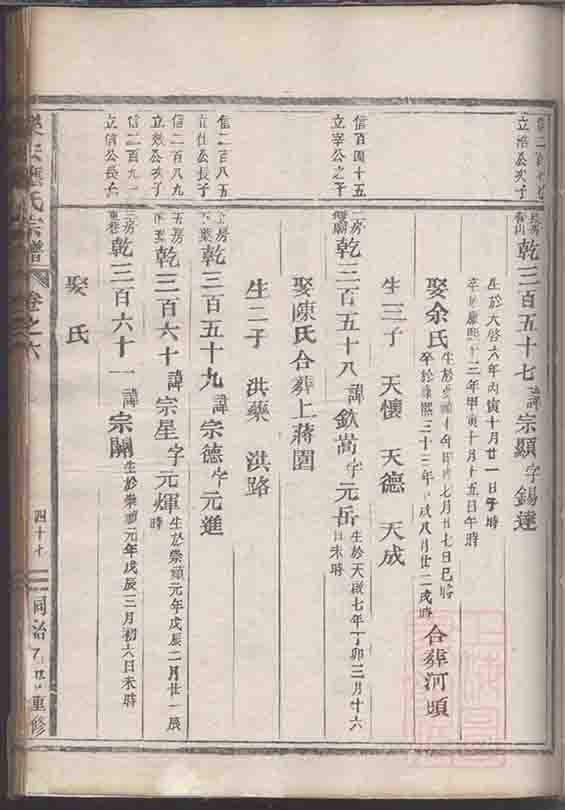 信二百
立浩公次子
房
乾三百五十七諱宗顯字錫達
生於天啓六年丙寅十月廿一日子時
卒於康熙十三年甲寅十月十五日午時
娶余氏
生於崇禎十年 七月廿七日巳時
卒於康熙三十三年甲戌八月廿二戌時
合葬河頭
生三子 天懷 天德 天成
信百四十五
立宰公之子
二房
乾三百五十八諱欽嵩字元岳
生於天啟七年丁卯三月十六
日未時
娶陳氏合葬上蔣園
生二子 洪藥 洪路
信二百八五
立仕公長子
房
乾三百五十九諱宗德字元進
信二百八九
立效公次子
房
乾三百六十諱宗星字元煇
生於崇禎元年戊辰二月廿一辰
時
信二百九一
立信公長子
三房
乾三百六十一諱宗開
生於崇禎元年戊辰三月初六日未時
娶 氏
氏宗譜
卷之六
四十七
同治 重修